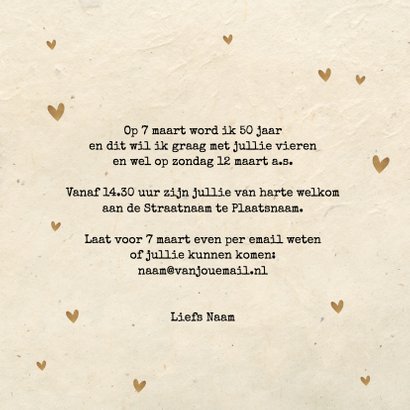 Op 7 maart word ik 50 jaar
en dit wil ik graag met jullie vieren
en wel op zondag 12 maart a.s.
Vanaf 14.30 uur zijn jullie van harte welkom
aan de Straatnaam te Plaatsnaam.
Laat voor 7 maart even per email weten
of jullie kunnen komen:
naam@vanjouemail.nl
Liefs Naam